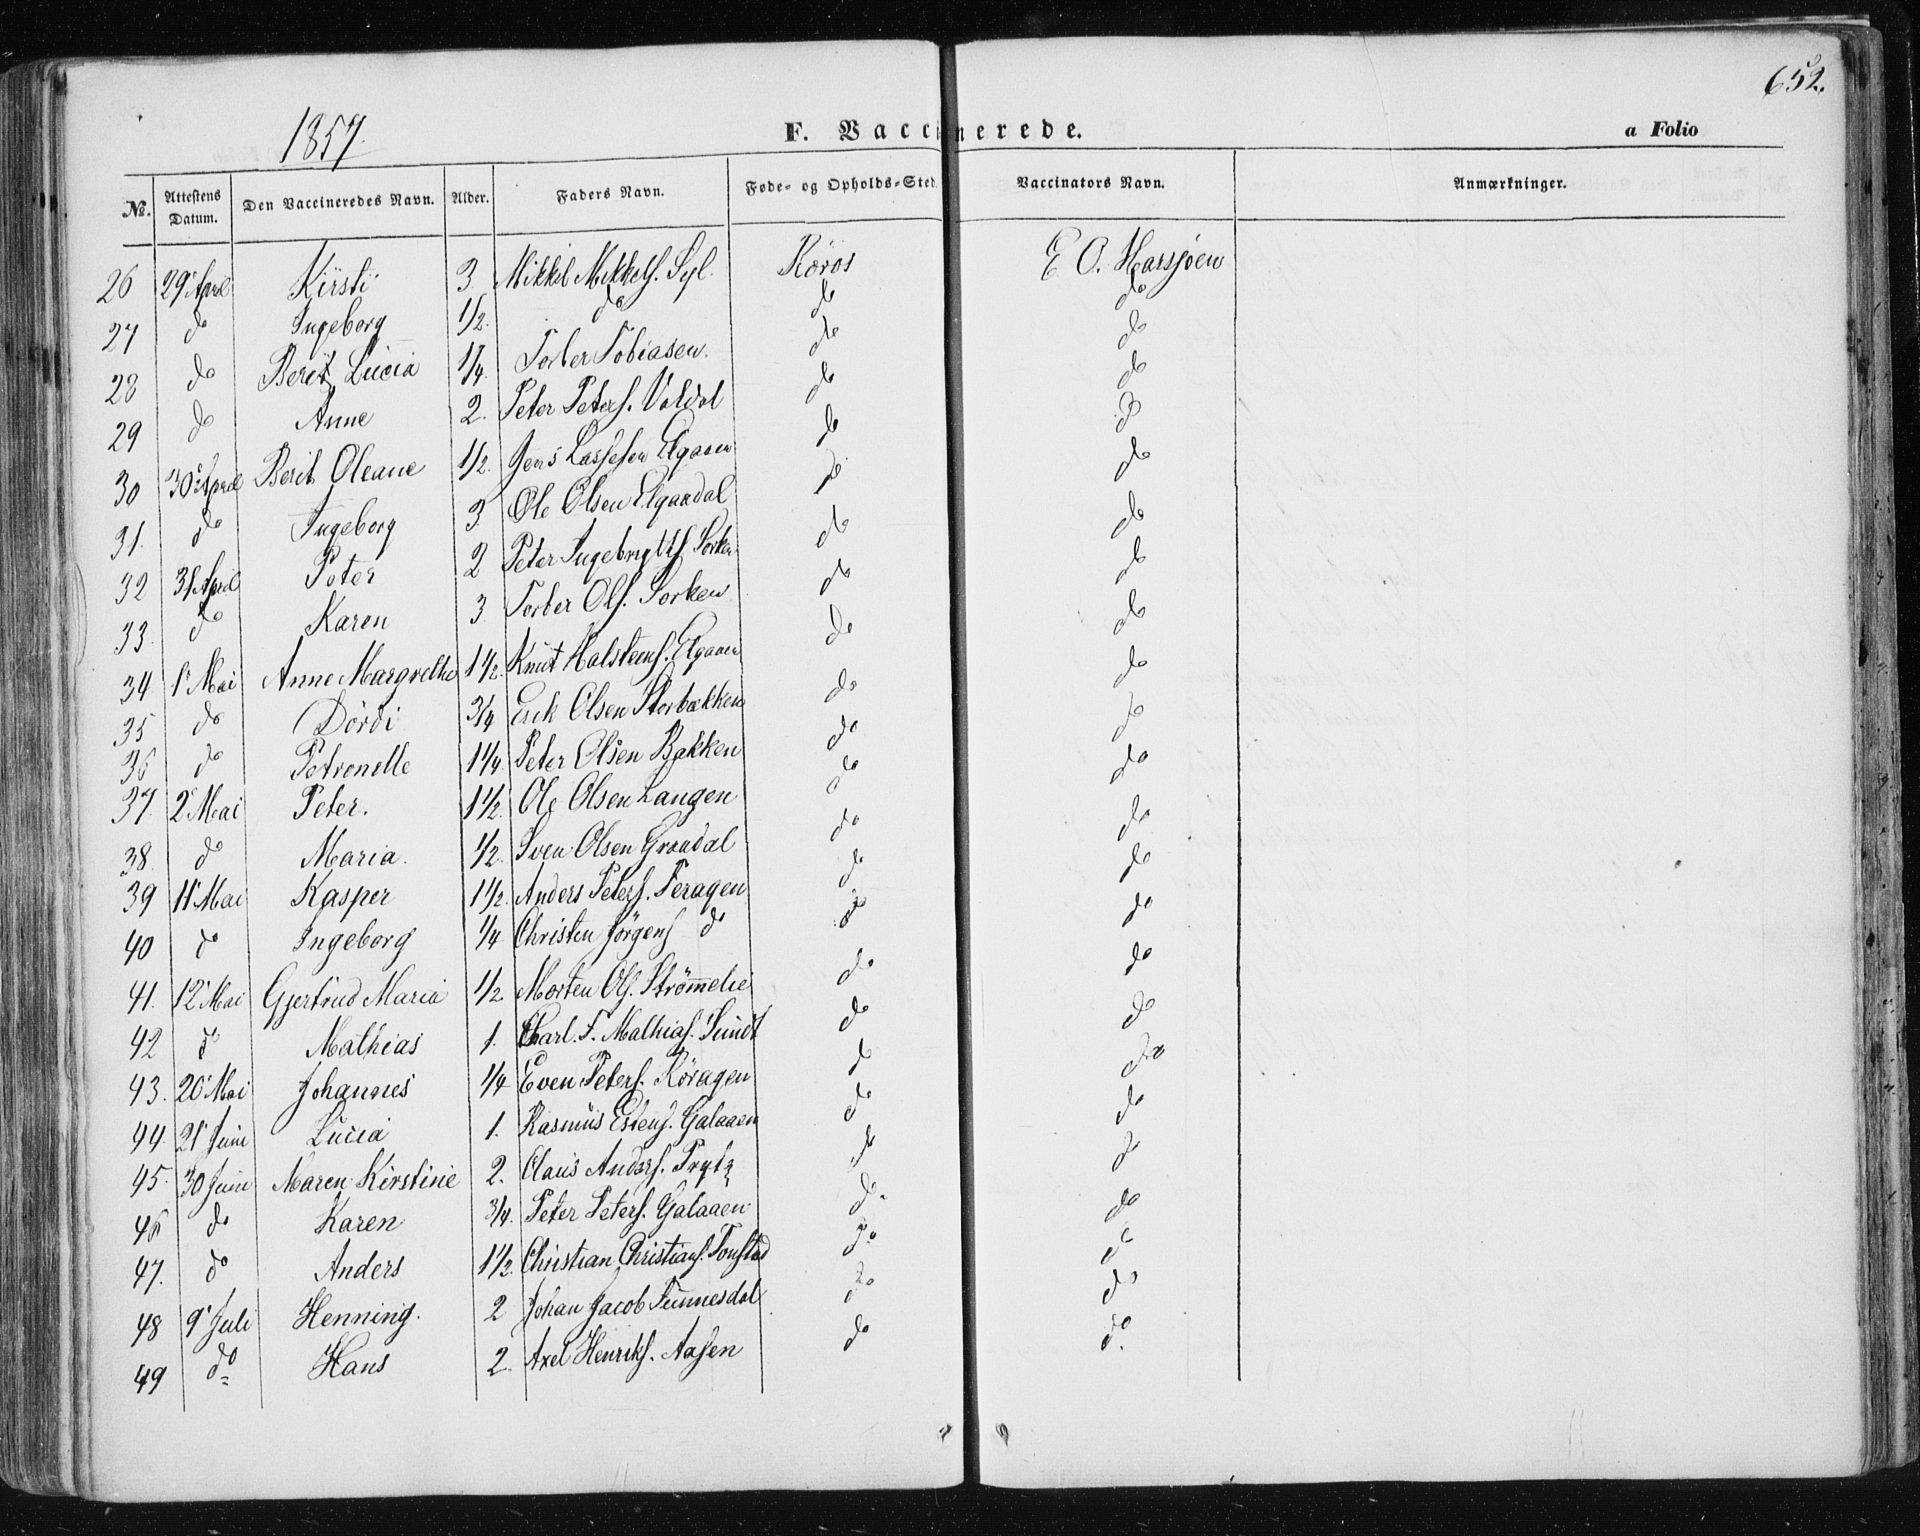 652.
1857.
F. Vaccinerede.
a Folio
No. Attestens Datum. Den Vaccineredes Navn. Alder. Faders Navn. Føde- og Opholds-Sted. Vaccinators Navn. Anmærkninger.
26 29 April Kirsti 3 Mikkel Mikkels. Syl. Røros E O. Harsjøen
27 do Ingeborg 1/2. do do do
28 do Berit Lucia 1/4. Torber Tobiasen. do do
29 do Anne 2. Peter Peters. Valdal do do
30 30 April Berit Oleane 1/2. Jens Lassesen Elgaaen do do
31. do Ingeborg 3 Ole Olsen Elgaadal do do
32 31 April Peter 2 Peter Ingebrigtts. Sorken do do
33. do Karen 3 Torber Ols. Sorken do do
34 1 Mai Anne Margrethe 1 1/2. Knut Halsteens. Elgaaen do do
35 do Dördi 3/4 Erik Olsen Storbækken do do
36 do Petronelle 1 1/4. Peter Olsen Bakken do do
37. 2 Mai Peter. 1 1/2. Ole Olsen Langen do do
38. do Maria. 1/2. Sven Olsen Graadal do do
39 11 Mai Kasper 1 1/2. Anders Peters. Feragen do do
40 do Ingeborg 1/4 Christen Jörgens do do do
41. 12 Mai Gjertrud Maria 1/2. Morten Ols. Strømmelie do do
42 do Mathias 1. Charl. F. Mathias. Sundt do do
43. 20 Mai Johannes 1/4 Even Peters. Röragen do do
44. 21 Juni Lucia 1. Rasmus Estens. Galaaen do do
45. 30 Juni Maren Kirstine 2. Claus Anders. Trytz do do
46 do Karen 3/4. Peter Peters. Galaaen do. do
47. do Anders 1 1/2. Christian Christians. Tonstad do do
48 9 Juli Henning. 2 Johan Jacob Tunnesdal do do
49 do Hans 2. Axel Henriks. Aasen do do.